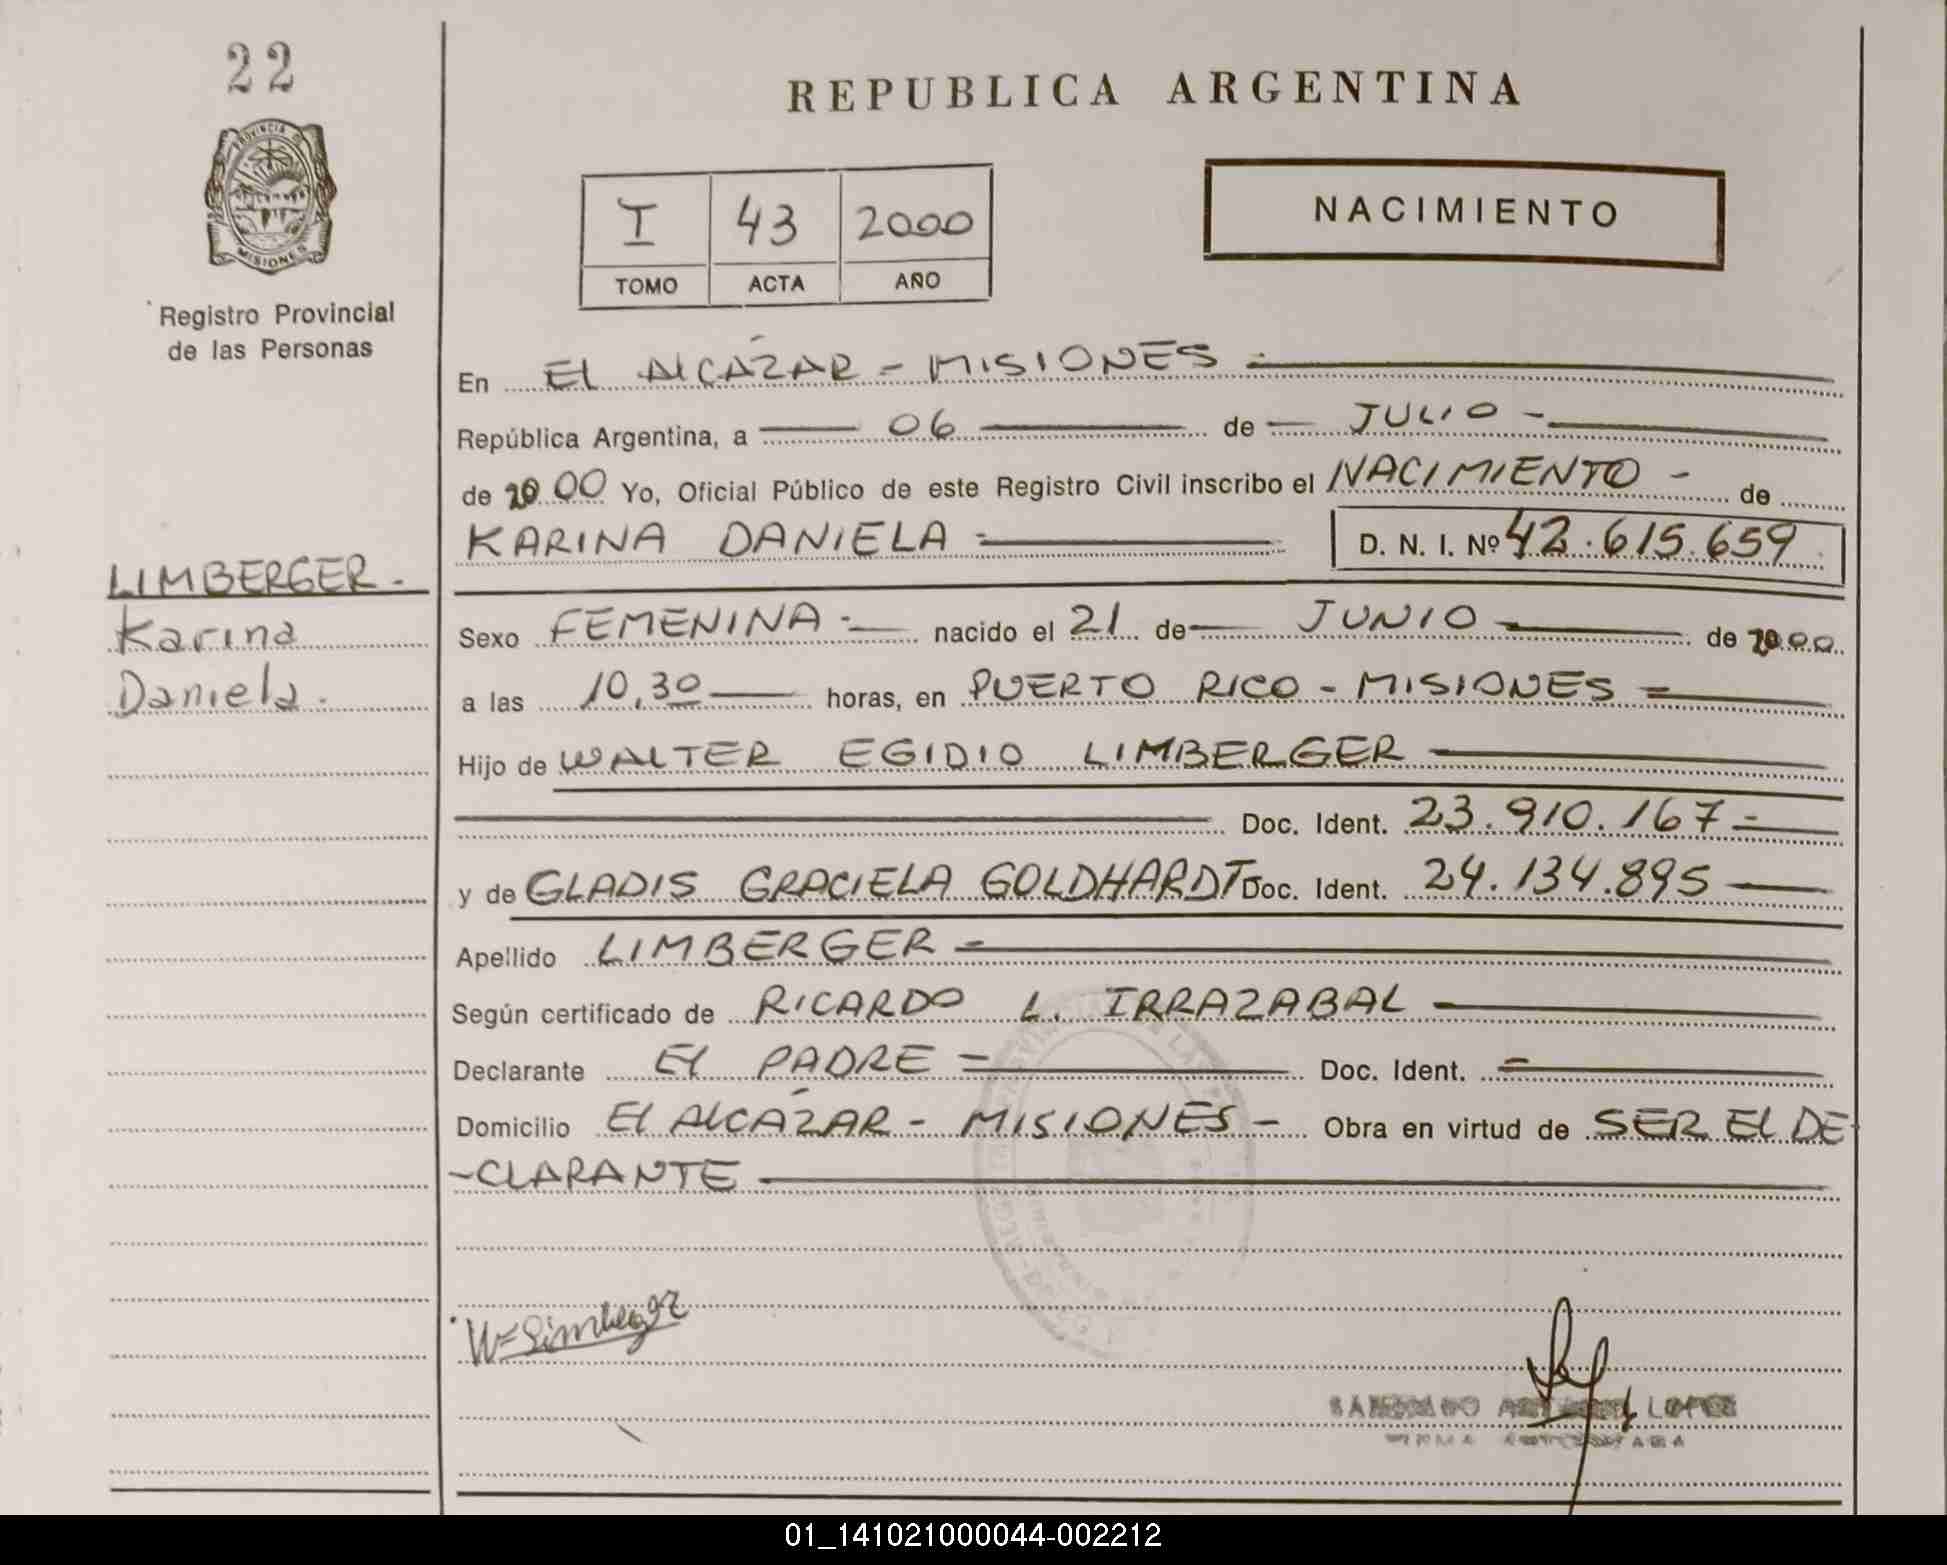 22
PROVINCIA DE
MISIONES
Registro Provincial
de las Personas
LIMBERGER.
Karina
Daniela.
REPUBLICA ARGENTINA
I 43 2000
TOMO ACTA AÑO
NACIMIENTO
En EL ALCÁZAR - MISIONES -
República Argentina, a 06 de JULIO -
de 2000 Yo, Oficial Público de este Registro Civil inscribo el NACIMIENTO - de
KARINA DANIELA D. N. I. Nº 42.615.659
Sexo FEMENINA - nacido el 21 de JUNIO de 2000
a las 10,30 horas, en PUERTO RICO - MISIONES -
Hijo de WALTER EGIDIO LIMBERGER
Doc. Ident. 23.910.167 -
y de GLADIS GRACIELA GOLDHARDT Doc. Ident. 24.134.895
Apellido LIMBERGER -
Según certificado de RICARDO L. IRRAZABAL
Declarante EL PADRE - Doc. Ident. -
Domicilio EL ALCÁZAR - MISIONES - Obra en virtud de SER EL DE
-CLARANTE
W Limberger
LOPEZ
01_141021000044-002212